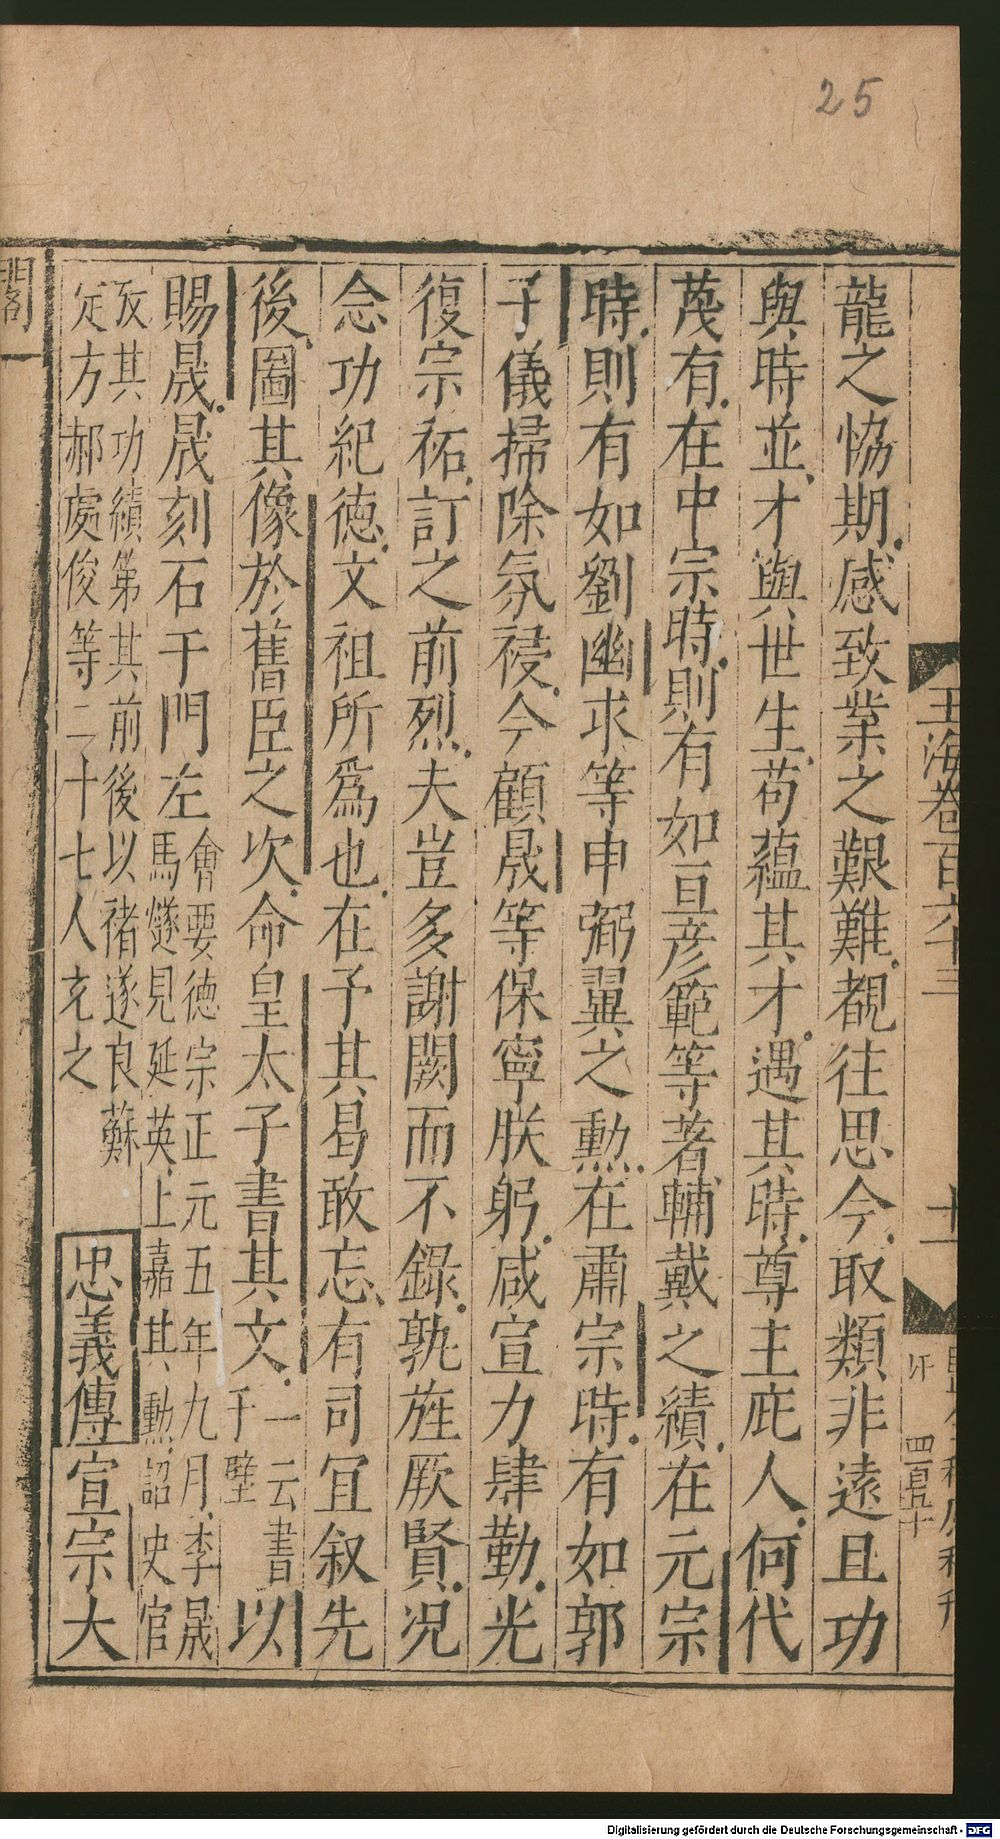 25
玉海卷百六十三
十一
四百五十
龍之恊期感致業之艱難覩往思今取類非遠且功
與時並才與世生苟蘊其才遇其時尊主庇人何代
蔑有在中宗時則有如亘彦範等著輔戴之績在元宗
時則有如劉幽求等申弼翼之勲在肅宗時有如郭
子儀掃除氛祲今顧晟等保寧朕躬咸宣力肆勤光
復宗祏訂之前烈夫豈多謝闕而不錄孰旌厥賢况
念功紀徳文祖所爲也在予其曷敢忘有司冝叙先
後圖其像於舊臣之次命皇太子書其文一云書于壁以
賜晟晟刻石于門左會要德宗正元五年九月李晟馬燧見延英上嘉其勲詔史官
攷其功績第其前後以褚遂良蘇定方郝處俊等二十七人充之忠義傳宣宗大
閣一
Digitalisierung gefördert durch die Deutsche Forschungsgemeinschaft - DFG